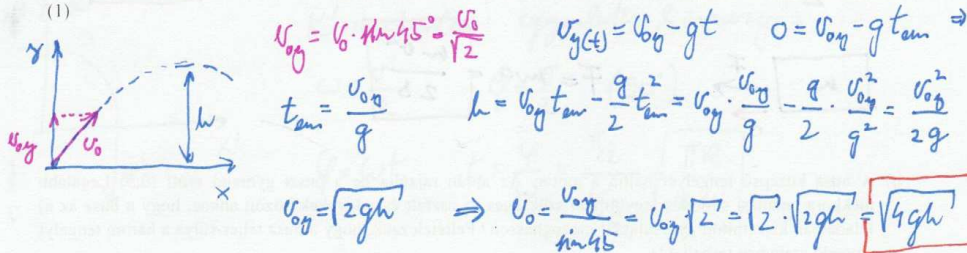 (1)
v_{0y} = v_0 · sin 45° = \frac{v_0}{\sqrt{2}}    v_{y(t)} = v_{0y} - gt    0 = v_{0y} - g t_{em} ⇒
y
v_{0y} v_0 h
t_{em} = \frac{v_{0y}}{g}    h = v_{0y} t_{em} - \frac{g}{2} t_{em}^2 = v_{0y} · \frac{v_{0y}}{g} - \frac{g}{2} · \frac{v_{0y}^2}{g^2} = \frac{v_{0y}^2}{2g}
v_{0y} = \sqrt{2gh} ⇒ v_0 = \frac{v_{0y}}{sin 45} = v_{0y} \sqrt{2} = \sqrt{2} · \sqrt{2gh} = \sqrt{4gh}